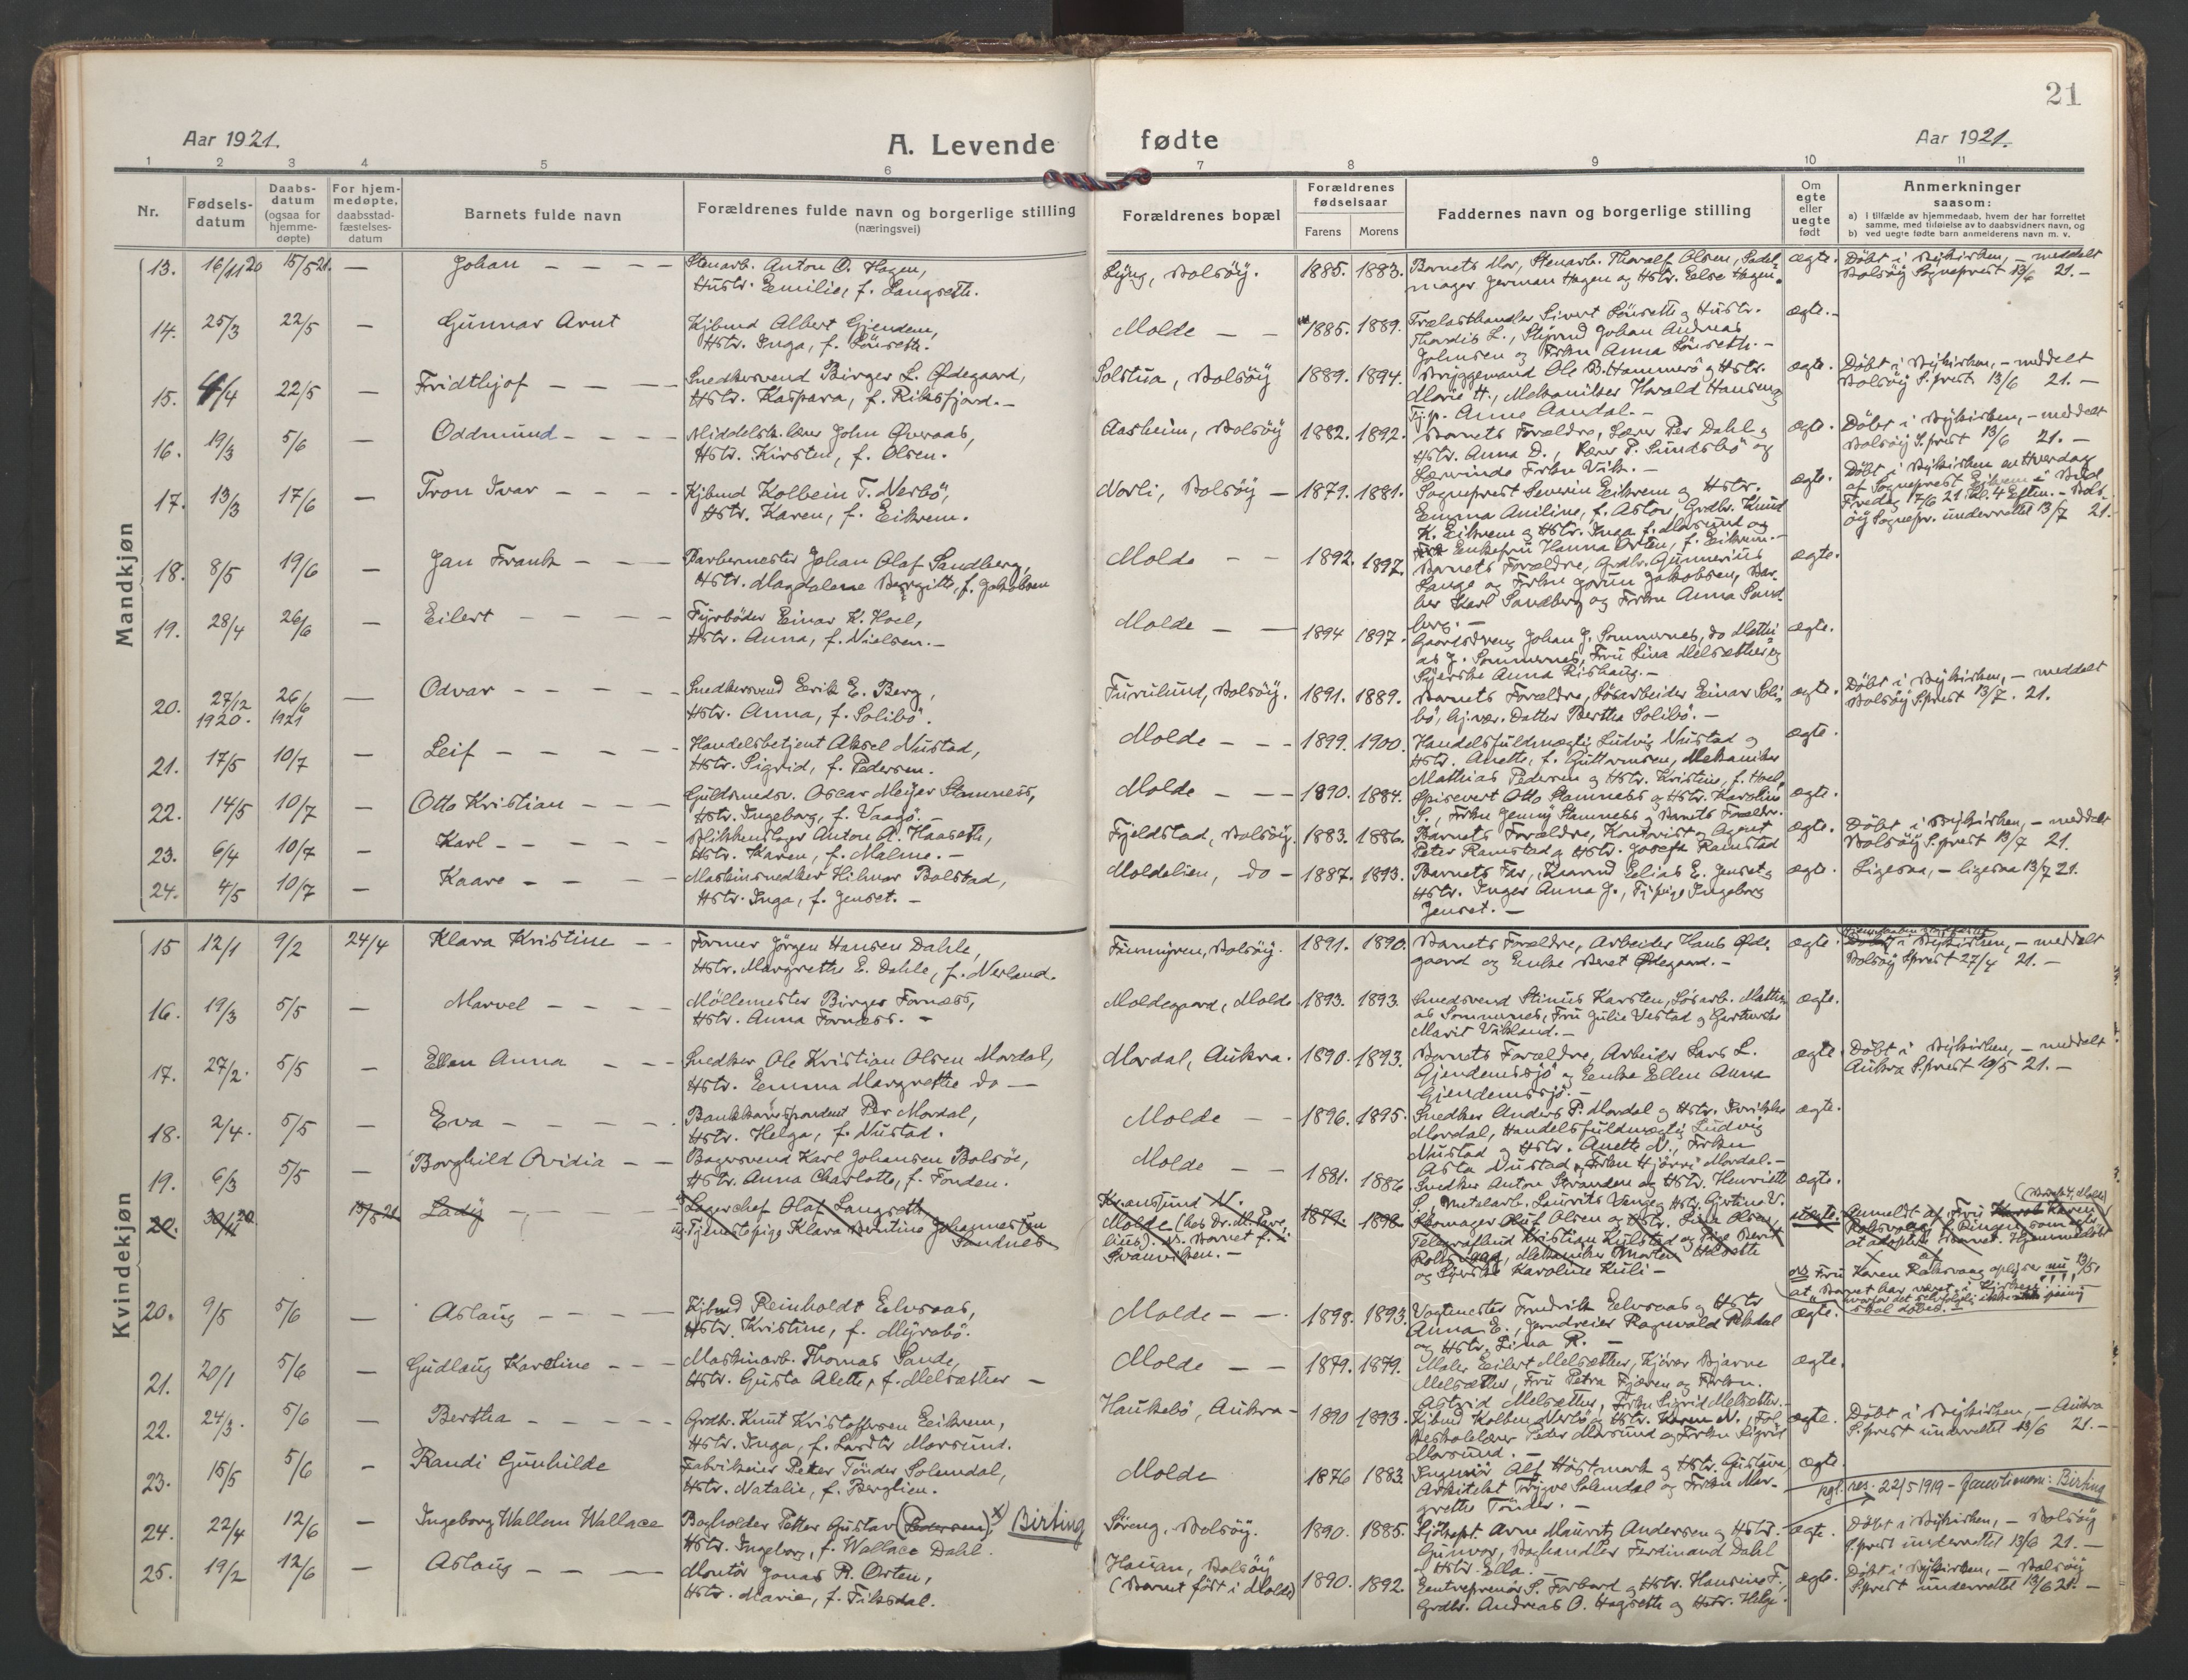 21
Aar 1921.
A. Levende
fødte
Aar 1921.
1 2 3 4 5 6 7 8 9 10 11
Nr.
Fødsels-
datum
Daabs-
datum
(ogsaa for
hjemme-
døpte)
For hjem-
medøpte,
daabsstad-
fæstelses-
datum
Barnets fulde navn
Forældrenes fulde navn og borgerlige stilling
(næringsvei)
Forældrenes bopæl
Forældrenes
fødselsaar
Farens Morens
Faddernes navn og borgerlige stilling
Om
egte
eller
uegte
født
Anmerkninger
saasom:
a) i tilfælde av hjemmedaab, hvem der har forrettet
samme, med tilføielse av to daabsvidners navn, og
b) ved uegte fødte barn anmelderens navn m. v.
Mandkjøn
13. 16/11 20 15/5 21. — Johan — — — —
Stenarb. Anton O. Hagen,
Hustr. Emilie, f. Langseth.
Lÿng, Bolsöÿ. 1885. 1883.
Barnets Mor, Stenarb. Thoralf Olsen, Sadel-
mager German Hagen og Hstr. Else Hagen.
ægte. Döbt i Bÿkirken, — meddelt
Bolsöÿ Sogneprest 13/6 21. —
14. 25/3 22/5 — Gunnar Arnt
Kjbmd Albert Gjendem,
Hstr. Inga, f. Lönseth.
Molde — — 1885. 1889.
Trælasthandler Sivert Lönseth og Hustr.
Thordis L., Stÿrmd Johan Andreas
Johnsen og Frkn Anna Lönseth. —
ægte. —
15. 4/4 22/5 — Fridthjof — — —
Snedkersvend Birger L. Ødegaard,
Hstr. Kaspara, f. Riksfjord. —
Solstua, Bolsöÿ 1889. 1894.
Brÿggemand Ole B. Hammerö og Hstr.
Marie H., Mekaniker Harald Hansen og
Tj.p. Anne Aandal. —
ægte. Döbt i Bÿkirken, — meddelt
Bolsöÿ S.prest 13/6 21. —
16. 19/3 5/6 — Oddmund — — — —
Middelsk.lærer John Øveraas,
Hstr. Kirsten, f. Olsen.
Aasheim, Bolsöÿ 1882. 1892.
Barnets Forældre, Lærer Per Dahl og
Hstr. Anna D., Lærer P. Sundsbö og
Lærerinde Frkn Vik. —
ægte. Döbt i Bÿkirken, — meddelt
Bolsöÿ S.prest 13/6 21. —
17. 13/3 17/6 — Tron Ivar — — — —
Kjbmd Kolbein T. Nerbö,
Hstr. Karen, f. Eikrem.
Norli, Bolsöÿ — 1879. 1881.
Sogneprest Severin Eikrem og Hstr.
Emma Aniline, f. Aston, Grdbr. Knud
K. Eikrem og Hstr. Inga f. Morsund og
Enkefru Hanna Orten, f. Eikrem. —
ægte. Döbt i Bÿkirken en Hverdag
af Sogneprest Eikrem i Bud
Fredag 17/6 21 Kl. 4 Eftm. — Bols-
öÿ Sognepr. underrettet 13/7 21.
18. 8/5 19/6 — Jan Frank — — —
Barbermester Johan Olaf Sandberg,
Hstr. Magdalene Bergitte, f. Jakobsen
Molde — — 1892. 1897.
Barnets Forældre, Grdbr. Gunnerius
Lange og Frkn Jorun Jakobsen, Bar-
ber Karl Sandberg og Frkn Anna Sand-
berg. —
ægte.
19. 28/4 26/6 — Eilert — — — —
Fÿrböder Einar K. Hoel,
Hstr. Anna, f. Nielsen. —
Molde — — 1894 1897.
Gaardsdreng Johan J. Sommernes, do Mathi-
as J. Sommernes, Fru Lina Melsæther og
Sÿerske Anna Rishaug. —
ægte.
20. 27/12 1920. 26/6 1921 — Odvar — — — —
Snedkersvend Eerik E. Berg,
Hstr. Anna, f. Solibö.
Furulund, Bolsöÿ. 1891. 1889.
Barnets Forældre, Lösarbeider Einar Soli-
bö, hj.vær. Datter Bertha Solibö. —
ægte. Döbt i Bÿkirken, — meddelt
Bolsöÿ S.prest 13/7. 21.
21. 17/5 10/7 — Leif — — — —
Handelsbetjent Aksel Nustad,
Hstr. Sigrid, f. Pedersen.
Molde — — 1899. 1900.
Handelsfuldmægtig Ludvig Nustad og
Hstr. Anette, f. Guttormsen, Mekaniker
Mathias Pedersen og Hstr. Kristine, f. Hoel.
ægte.
22. 14/5 10/7 — Otto Kristian — — —
Guldsmedsv. Oscar Meÿer Stamness,
Hstr. Ingeborg, f. Vaagö. —
Molde — — 1890. 1884.
Spisevert Otto Stamness og Hstr. Karoline
S., Frkn Jennÿ Stamness og Barnets Forældre.
ægte.
23. 6/4 10/7 — Karl — — — —
Blikkenslager Anton A. Haaseth,
Hstr. Karen, f. Malme. —
Fjeldstad, Bolsöÿ. 1883. 1886.
Barnets Forældre, Kontorist og Agent
Peter Ramstad og Hstr. Josefa Ramstad
ægte. Döbt i Bÿkirken, — meddelt
Bolsöÿ S.prest 13/7 21.
24. 4/5 10/7 — Kaare — — — —
Maskinsnedker Hilmar Bolstad,
Hstr. Inga, f. Jenset. —
Moldelien, do — 1887. 1893.
Barnets Far, Elias E. Jenset og
Hstr. Inger Anna J., Tj.pige Ingeborg
Jenset. —
ægte. Ligesaa, — ligesaa 13/7 21.
Kvindekjøn
15 12/1 9/2 24/4 Klara Kristine — —
Former Jörgen Hansen Dahle,
Hstr. Margrethe E. Dahle, f. Nerland.
Furmÿren, Bolsöÿ. 1891. 1890.
Barnets Forældre, Arbeider Hans Øde-
gaard og Enke Beret Ødegaard. —
ægte. Döbt i Bÿkirken, — meddelt
Bolsöÿ S.prest 27/4 21. —
16. 19/3 5/5 — Marvel — — — —
Möllemester Birger Fornæss,
Hstr. Anna Fornæss. —
Moldegaard, Molde 1893. 1893.
Smedsvend Stinus Karsten, Lösarb. Mathi-
as Sommernes, Fru Julie Vestad og
Marit Vikland. —
ægte.
17. 27/2. 5/5 — Ellen Anna — — —
Snedker Ole Kristian Olsen Mordal,
Hstr. Emma Margrethe do —
Mordal, Aukra. 1890. 1893.
Barnets Forældre, Arbeider Lars L.
Gjendemssjö og Enke Ellen Anna
Gjendemssjö. —
ægte. Döbt i Bÿkirken, — meddelt
Aukra S.prest 10/5 21. —
18. 2/4. 5/5 — Eva — — — —
Bankkorrespondent Per Mordal,
Hstr. Helga, f. Nustad.
Molde — — 1896. 1895.
Snedker Anders P. Mordal og Hstr. Fredrikke
Mordal, Handelsfuldmægtig Ludvig
Nustad og Hstr. Anette N., Frkn
Asta Nustad, Frkn Hjördis Mordal. —
ægte.
19. 6/3 5/5 — Borghild Ovidia — —
Bagersvend Karl Johansen Bolsöe,
Hstr. Anna Charlotte, f. Fonden.
Molde — — 1881. 1886.
Snedker Anton Stranden og Hstr. Henriette
S., Metalarb. Laurits Venge og Hstr. Gjertine V.
ægte.
20. 30/11 20. 15/5 21 Ladÿ — — — —
Lagerchef Olaf Langseth
ug. Tjenestepige Klara Bentine Johannesen
Sandnes
Kr.ansund N.
Molde (hos Dr. M. Pare-
lius). N. Barnet f. i
Svanviken. —
1879. 1898.
Skomager Oluf Olsen og Hstr. Lina Olsen,
Telegrafbud Kristian Kulstad og Pige Berit
Rolsvaag, Mekaniker Morten Halseth
og Sÿerske Karoline Kuli —
uægte. Anmeldt af Fru Karen
Rolsvaag, f. Ringen, som agter
at adoptere Barnet. Hjemmedöbt
Fru Karen Rolsvaag oplÿser nu 13/5,
at Barnet har været i Kirken!!!!
hvorfor det selvfølgelig ikke
skal döbes.
20. 9/5 5/6 — Aslaug — — — —
Kjbmd Reinholdt Eelvsaas,
Hstr. Kristine, f. Mÿrabö.
Molde — — 1898. 1893.
Vagtmester Fredrik Eelvsaas og Hstr
Anna E., Jerndreier Ragnvald Pikdal
og Hstr. Lina R. —
ægte.
21. 20/1 5/6 — Gudlaug Karoline — —
Maskinarb. Thomas Sande,
Hstr. Gusta Alette, f. Melsæther —
Molde — — 1879. 1879.
Maler Eilert Melsæther, Kjörer Bjarne
Melsæther, Fru Petra Fjæren og Frkn.
Astrid Melsæther, Frkn Sigrid Melsæther.
ægte.
22. 24/3. 5/6 — Bertha — — — —
Grdbr. Knut Kristoffersen Eeikrem,
Hstr. Inga, f. Morsund.
Haukebö, Aukra — 1890 1893.
Kjbmd Kolben Nerbö og Hstr. Karen N., Fol-
keskolelærer Peder Morsund og Frkn Sigrid
Morsund. —
ægte. Döbt i Bÿkirken, — Aukra
S.prest underrettet 13/6 21. —
23. 15/5 5/6 — Randi Gunhilde
Fabrikeier Petter Tönder Solemdal,
Hstr. Natalie, f. Berglien.
Molde 1876 1883
Ingeniör Alf Höstmark og Hstr. Gustava,
Arkitekt Trÿgve Solemdal og Frkn Mar-
grethe Tönder. —
ægte.
24. 22/4 12/6 — Ingeborg Wallem Wallace
Bogholder Petter Gustav (Pedersen), x) Birting
Hstr. Ingeborg, f. Wallace Dahl.
Söreng, Bolsöÿ. 1890. 1885.
Sjökapt. Arne Mauritz Andersen og Hstr.
Gunvor, Boghandler Ferdinand Dahl
og Hstr. Ella.
ægte. kgl. res. 22/5 1919 — familienavn: Birting
Döbt i Bÿkirken, — Bolsöÿ
S.prest underrettet 13/6 21. —
25. 19/2 12/6 — Aslaug — — —
Montör Jonas R. Orten,
Hstr. Marie, f. Fiksdal.
Hauan, Bolsöÿ
(Barnet födt i Molde)
1890. 1892.
Eentreprenör S. Forbord og Hstr. Hansine F.,
Grdbr. Andreas O. Hagseth og Hstr. Helge.
ægte. Döbt i Bÿkirken, — Bolsöÿ
S.prest underrettet 13/6 21. —